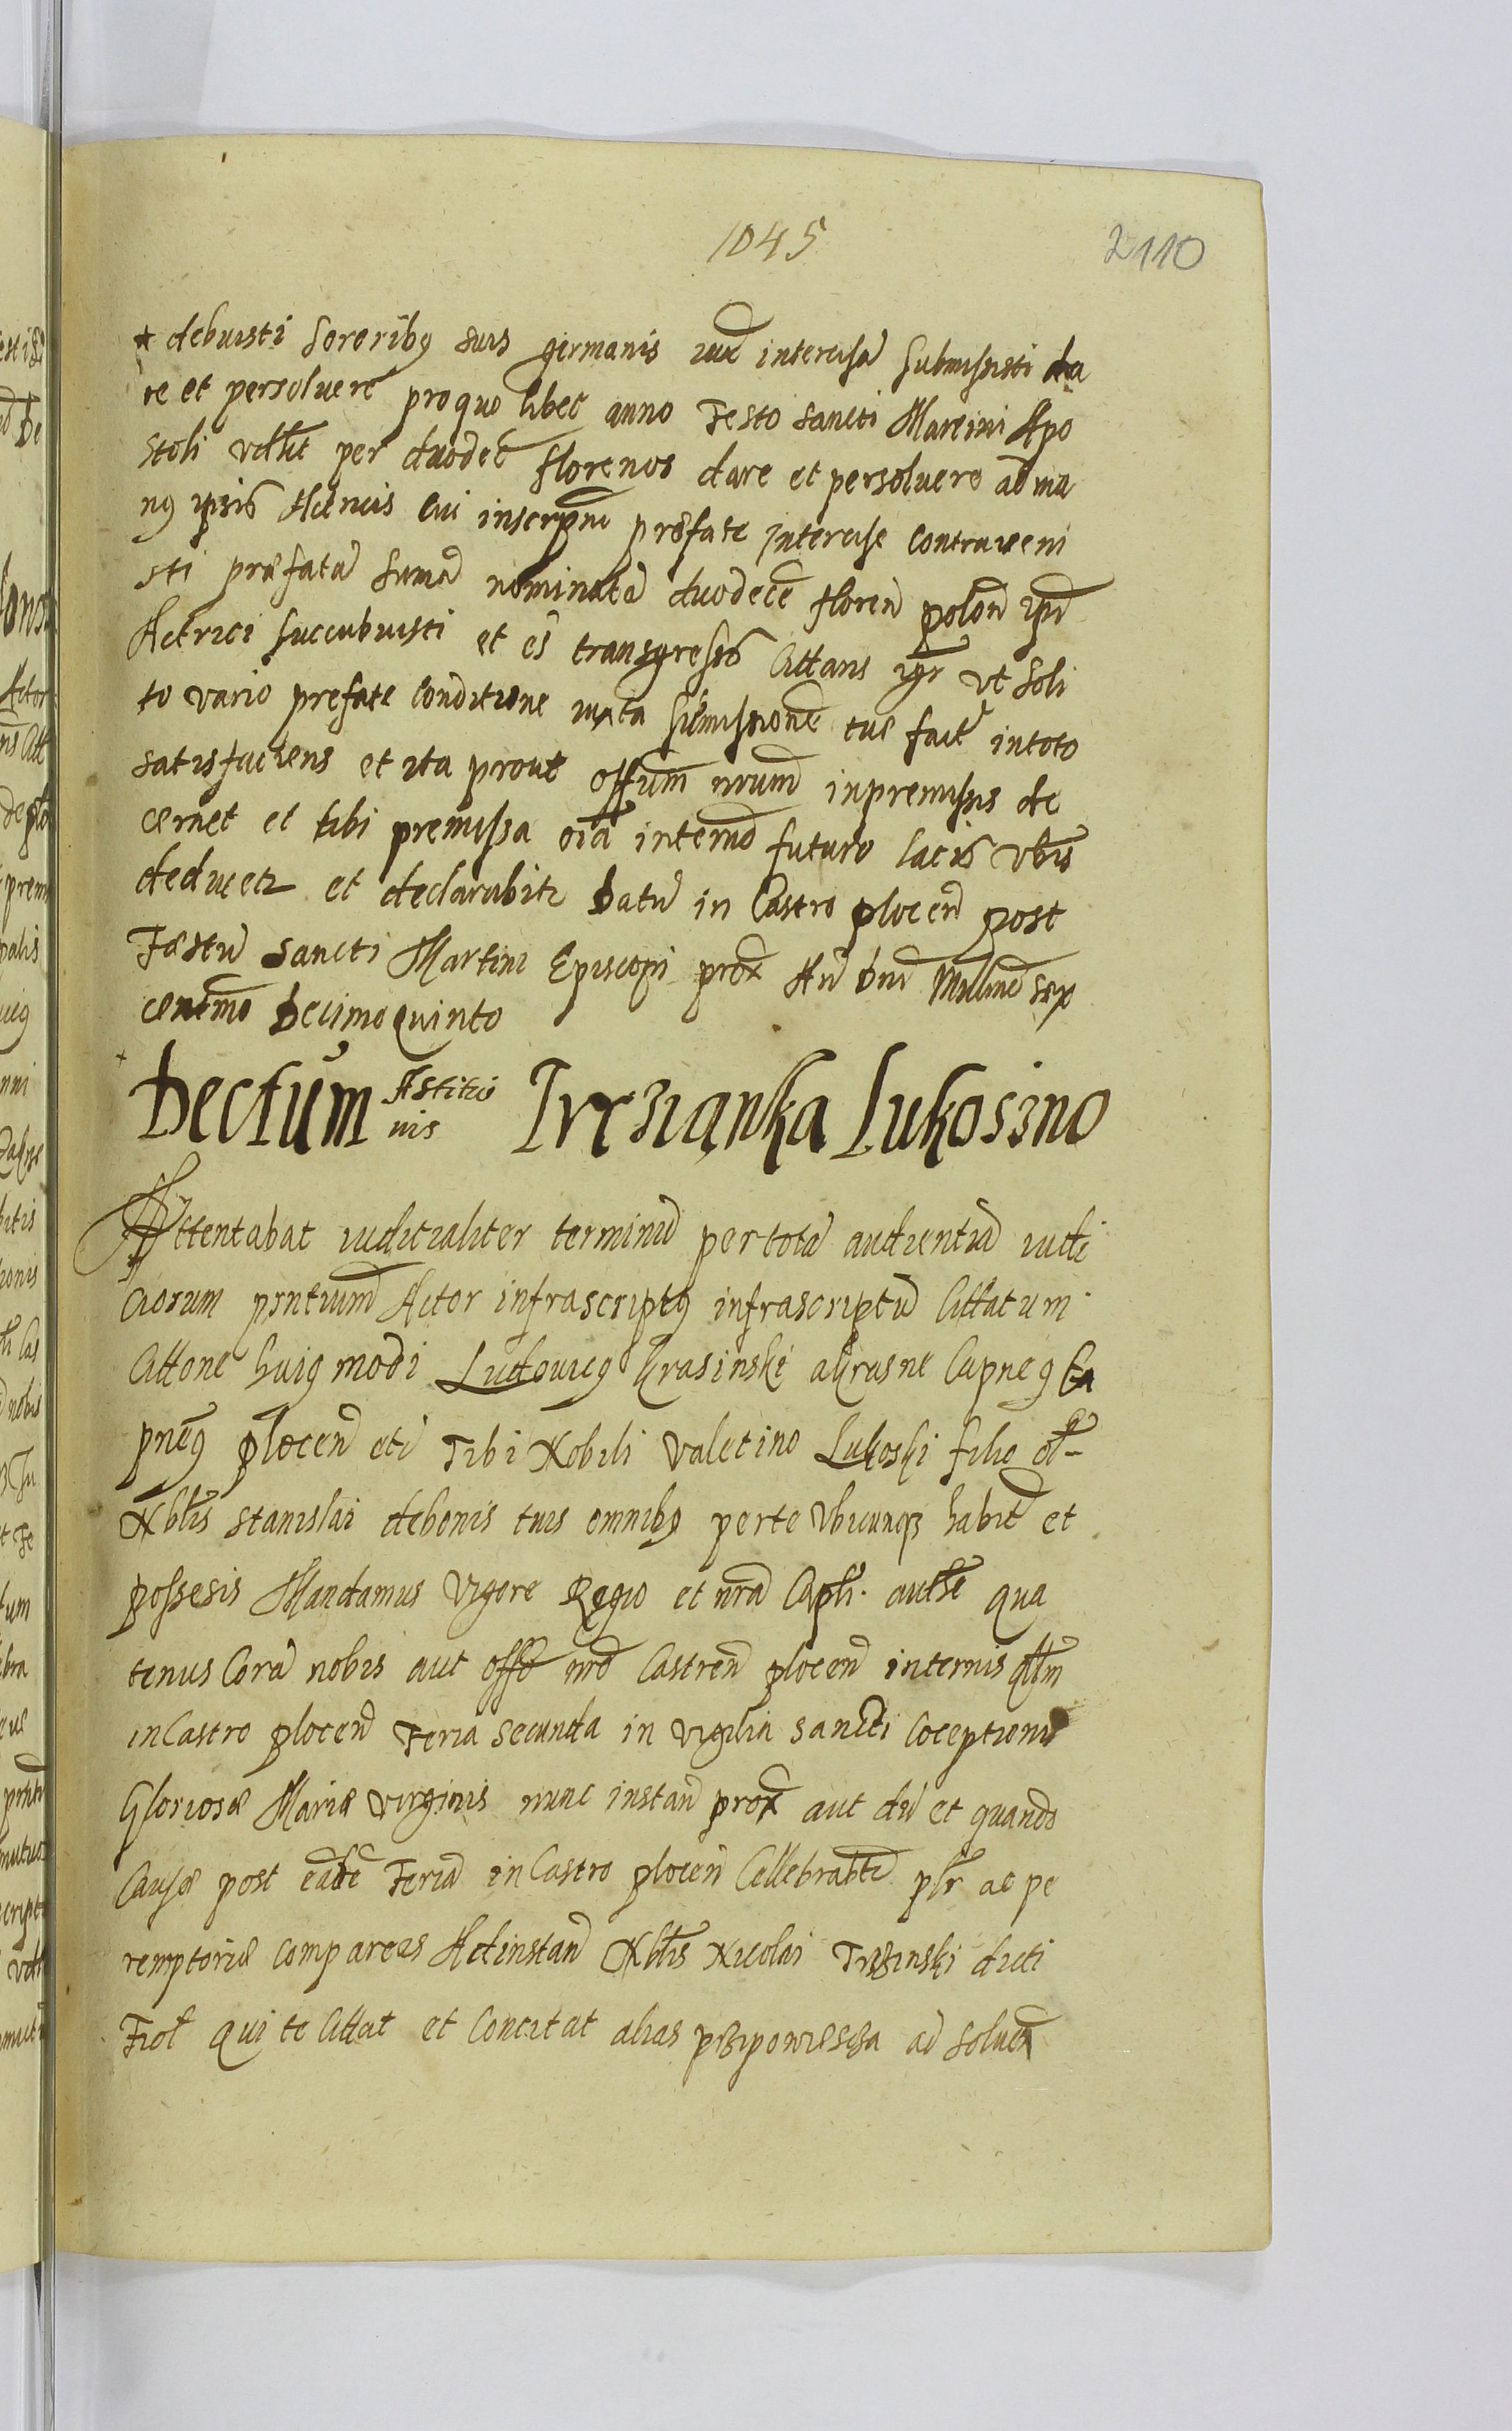 1045
2110
* debuisti Sororibꝯ suis germanis iux̃ intercisã submisisti da
re et persoluere pro quo libet anno Festo Sancti Martini Apo
stoli vdlt̃ per duodec̃ florenos dare et persoluere ad ma
nꝯ ipsiꝯ Actricis cui inscrip̃ni præfate intercise contraveni
sti præfatã sumã nominatã duodecẽ florẽ polõn ip̃i
Actrici succubuisti et eꝯ transgressꝯ Cittaris igr̃ ut Soli
to vario prefate conditione iuxta submissionẽ tuẽ fact̃ intoto
satisfaciens et ita prout offũm nrũm inpremissis de
cernet et tibi premissa oĩa intermõ futuro laciꝯ vbris
deducetꝛ et declarabitꝛ Datũ in Castro plocen̄ post
Festũ Sancti Martini Episcopi prox̃ Añ Dñi Millmõ sex
centm̃o Decimo Quinto
Dectum Astitio
nis Trczianka Lukosino
Attentabat iuditialiter terminũ per totã audientiã iudi
ciorum pr̃ntiũm Actor infrascriptꝯ infrascriptũ Cittatum
Citt̃one huiꝯ modi Ludouicꝯ Krasinski akrasne Capneꝯ Ca
pneꝯ plocen̄ etc̃ Tibi Nobili Valetino Lukoski filio ol̃-
Nbl̃is Stanislai debonis tuis omnibꝯ perte vbicunqꝫ habit̃ et
possesis Mandamus vigore Regio et nr̃a Capl̃i. auth̃e qua
tenus Corã nobis aut off̃o nr̃o Castren̄ plocen̄ internis
in Castro plocen̄ Feria secunda in vigilia sancti Coceptionis
Gloriosæ Mariæ virginis nunc instan̄ prox̃ aut dũ et quando
Causæ post eãde Feriã in Castro plocen̄ Cellebrabt̃ plr̃ ac pe
remptoriæ compareas Adinstan̄ Nbl̃is Nicolai Trzinski dicti
Fiol̃ qui te Cittat et Concitat alias przipowiescza ad soluen̄